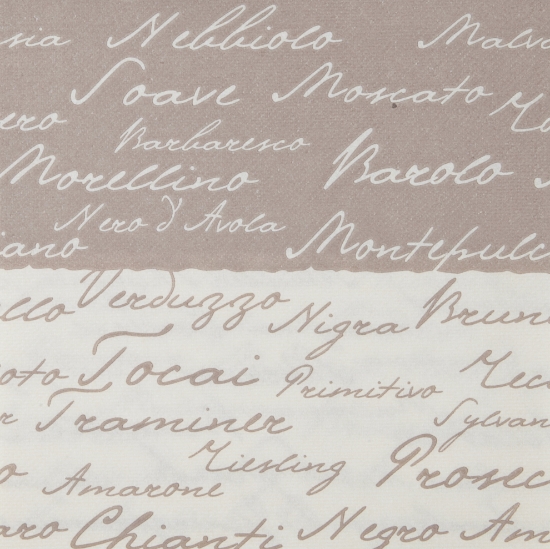 sia Nebbiolo Malva
Soave Moscato
ero Barbaresco
Morellino Barolo
Nero d'Avola
iano Montepulc
Verduzzo
ello Nigra Brun
oto Tocai Primitivo
r Traminer Sylvan
Riesling
o Amarone Prosec
aro Chianti Negro Am